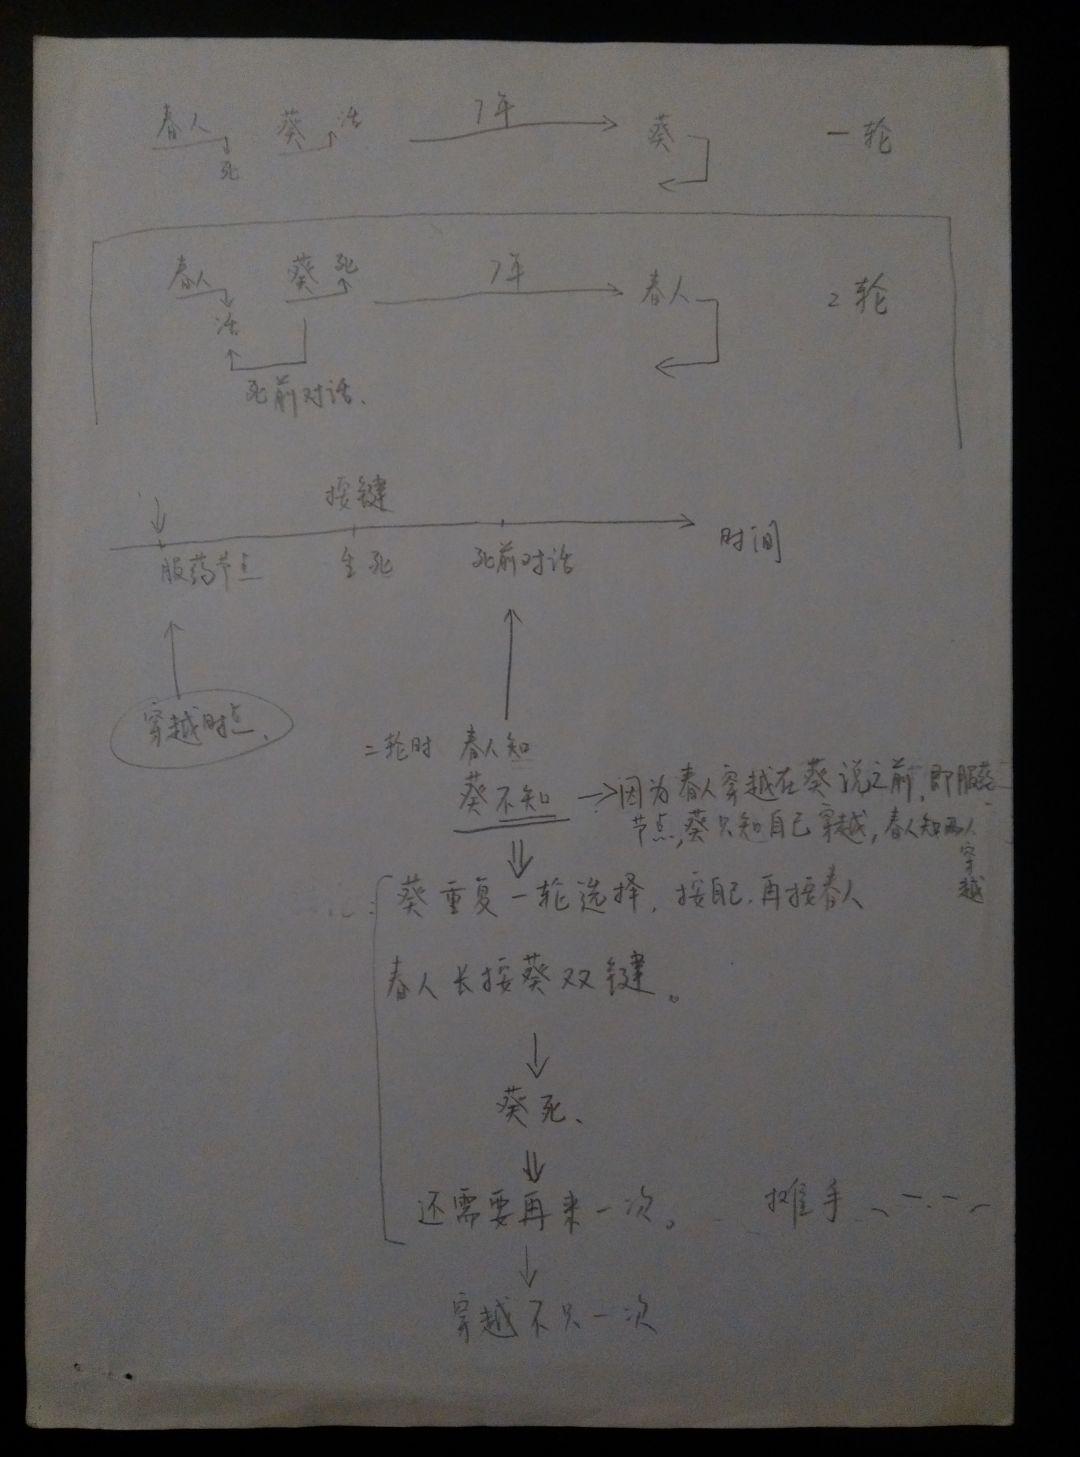 春人 葵 活 7年 葵 一轮
死
春人 葵 死 7年 春人 2轮
活
死前对话、
按键
服药节点 生死 死前对话 时间
穿越时点、
二轮时 春人知
葵不知 →因为春人穿越在葵说之前,即服药
节点,葵只知自己穿越,春人知两人
穿越
葵重复一轮选择,按自己.再按春人
春人长按葵双键。
葵死、
还需要再来一次。 摊手
穿越不只一次